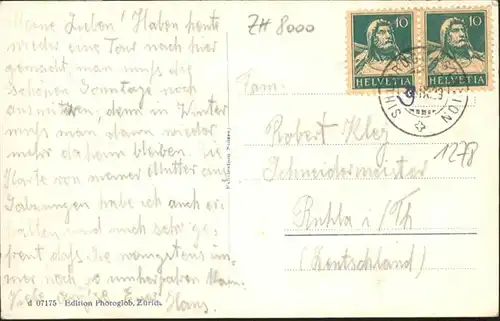 Meine Lieben! Haben heute
wieder eine Tour nach hier
gemacht, man muß die
schönen Sonntage noch
ausnützen, denn im Winter
muß man dann wieder
mehr daheim bleiben. Die
Karte von meiner Mutter aus
habe ich auch er-
halten und auch sehr ge-
freut daß Sie wenigstens im-
mer noch so umherfahren kann.
Viele Grüße Euer Hans
d 07175 - Edition Photoglob, Zürich.
ZH 8000
10 10
HELVETIA HELVETIA
Fam.
Robert Kley
1278
Schneidermeister
Ruhla i/Th
(Deutschland)